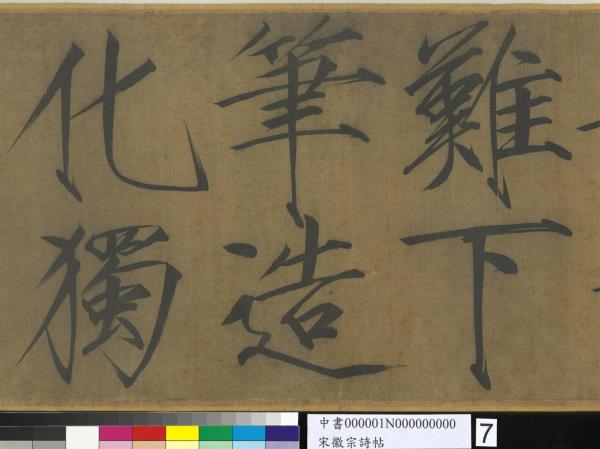 難下
筆造
化獨
中書000001N000000000
宋徽宗詩帖
7